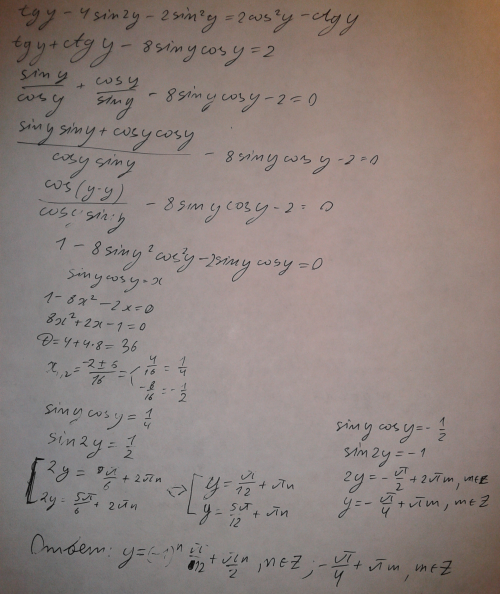 tgy - 4sin2y - 2sin²y = 2cos²y - ctgy
tgy + ctgy - 8sinycosy = 2
siny/cosy + cosy/siny - 8sinycosy - 2 = 0
(sinysiny + cosycosy)/(cosysiny) - 8sinycosy - 2 = 0
cos(y-y)/(cosysiny) - 8sinycosy - 2 = 0
1 - 8siny²cos²y - 2sinycosy = 0
sinycosy = x
1 - 8x² - 2x = 0
8x² + 2x - 1 = 0
D = 4 + 4·8 = 36
x₁,₂ = (-2 ± 6)/16 = ( 4/16 = 1/4
-8/16 = -1/2
sinycosy = 1/4
sin2y = 1/2
[ 2y = π/6 + 2πn
2y = 5π/6 + 2πn
<=> [ y = π/12 + πn
y = 5π/12 + πn
sinycosy = -1/2
sin2y = -1
2y = -π/2 + 2πm, m∈Z
y = -π/4 + πm, m∈Z
Ответ: y = (-1)ⁿ π/12 + πn/2, n∈Z; -π/4 + πm, m∈Z